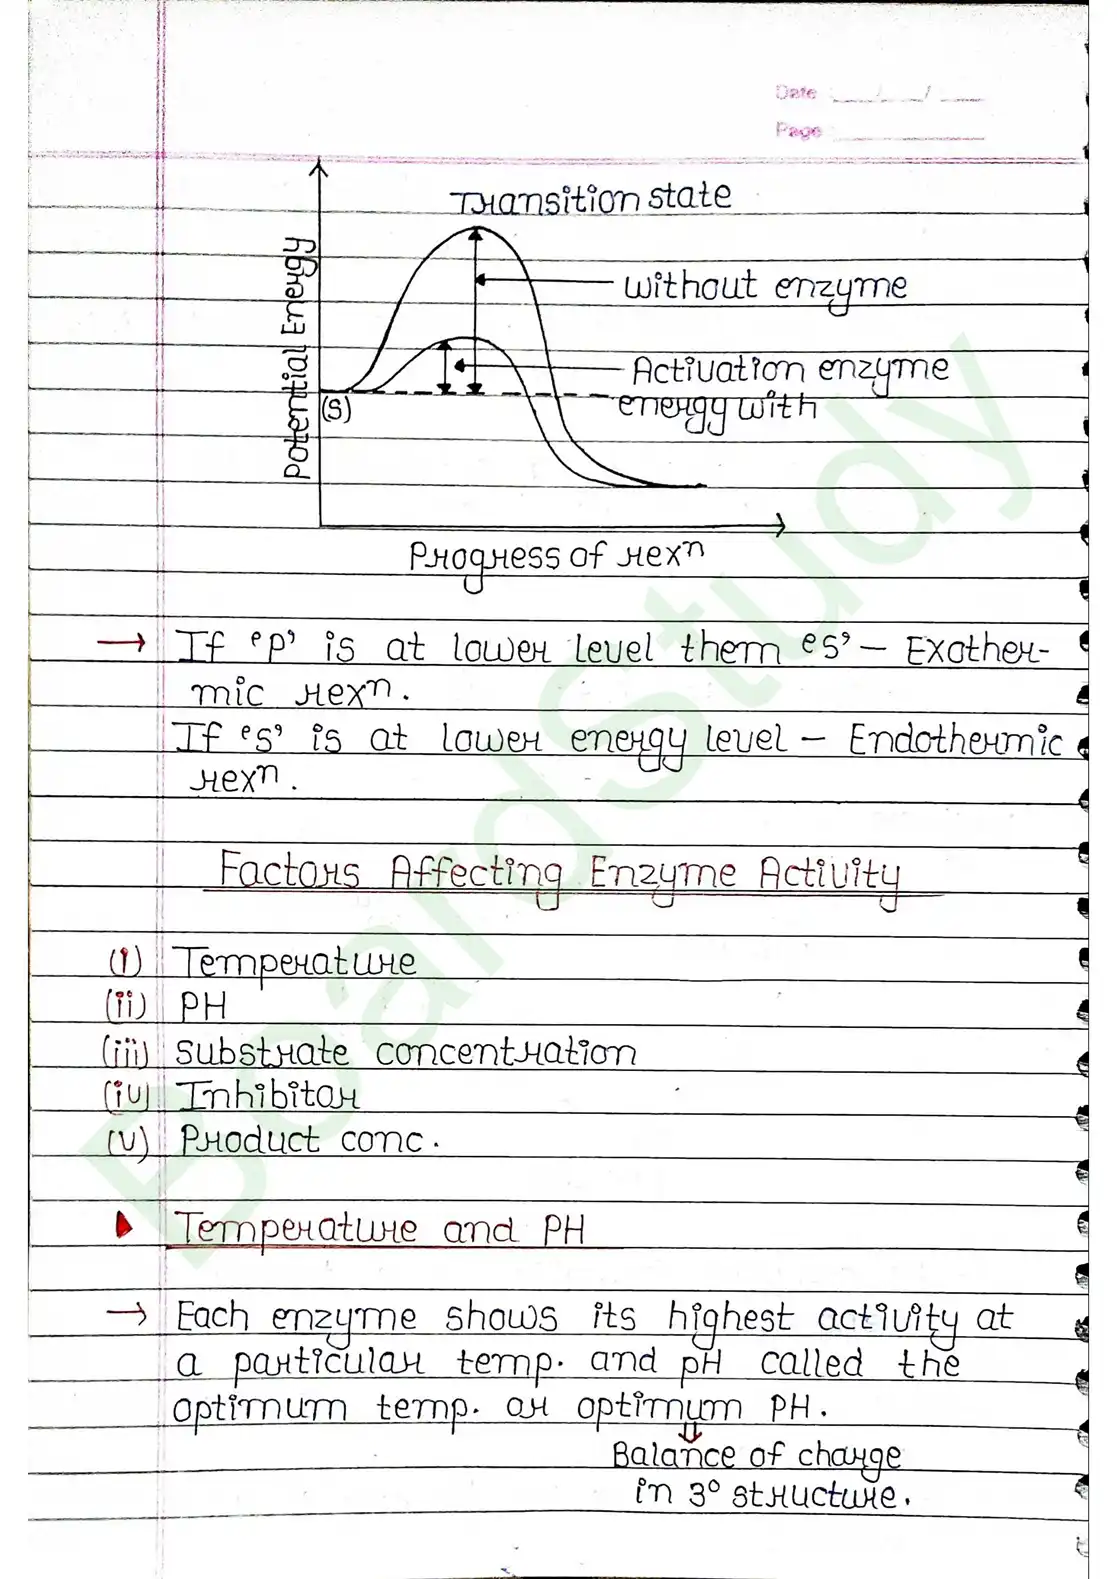 Date : __/__/__
Page : ______
Transition state
Potential Energy
without enzyme
Activation enzyme
energy with
(S)
Progress of rexⁿ
→ If 'P' is at lower level them 'S' – Exother-
mic rexⁿ.
If 'S' is at lower energy level – Endothermic
rexⁿ.
Factors Affecting Enzyme Activity
(i) Temperature
(ii) PH
(iii) Substrate concentration
(iv) Inhibitor
(v) Product conc.
Temperature and PH
→ Each enzyme shows its highest activity at
a particular temp. and pH called the
optimum temp. or optimum PH.
⇓
Balance of charge
in 3° structure.
BoardStudy